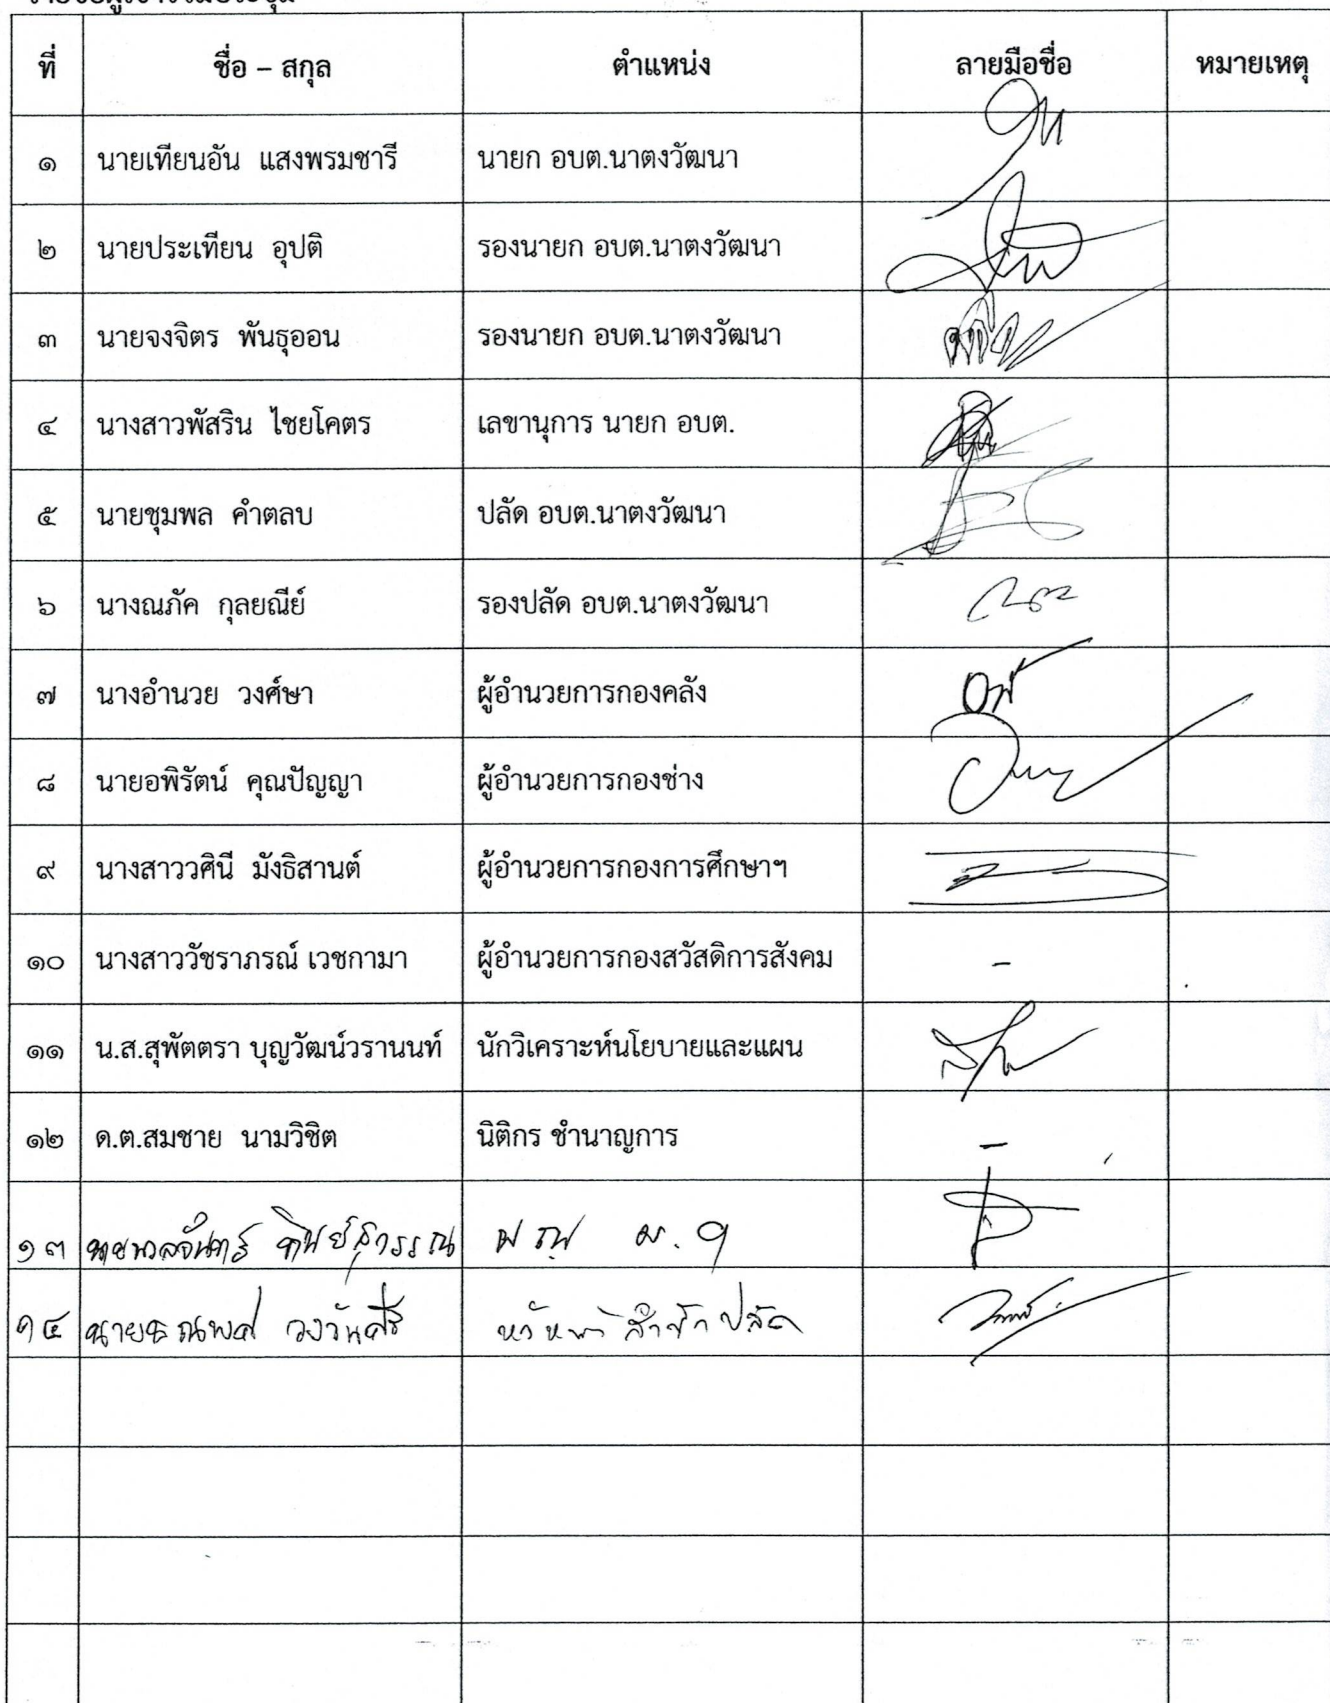 ที่ ชื่อ – สกุล ตำแหน่ง ลายมือชื่อ หมายเหตุ
๑ นายเทียนอัน แสงพรมชารี นายก อบต.นาตงวัฒนา
๒ นายประเทียน อุปติ รองนายก อบต.นาตงวัฒนา
๓ นายจงจิตร พันธุออน รองนายก อบต.นาตงวัฒนา
๔ นางสาวพัสริน ไชยโคตร เลขานุการ นายก อบต.
๕ นายชุมพล คำตลบ ปลัด อบต.นาตงวัฒนา
๖ นางณภัค กุลยณีย์ รองปลัด อบต.นาตงวัฒนา
๗ นางอำนวย วงศ์ษา ผู้อำนวยการกองคลัง
๘ นายอพิรัตน์ คุณปัญญา ผู้อำนวยการกองช่าง
๙ นางสาววศินี มังธิสานต์ ผู้อำนวยการกองการศึกษาฯ
๑๐ นางสาววัชราภรณ์ เวชกามา ผู้อำนวยการกองสวัสดิการสังคม -
๑๑ น.ส.สุพัตตรา บุญวัฒน์วรานนท์ นักวิเคราะห์นโยบายและแผน
๑๒ ด.ต.สมชาย นามวิชิต นิติกร ชำนาญการ -
๑๓
๑๔ นายธณพศ วงวันศรี